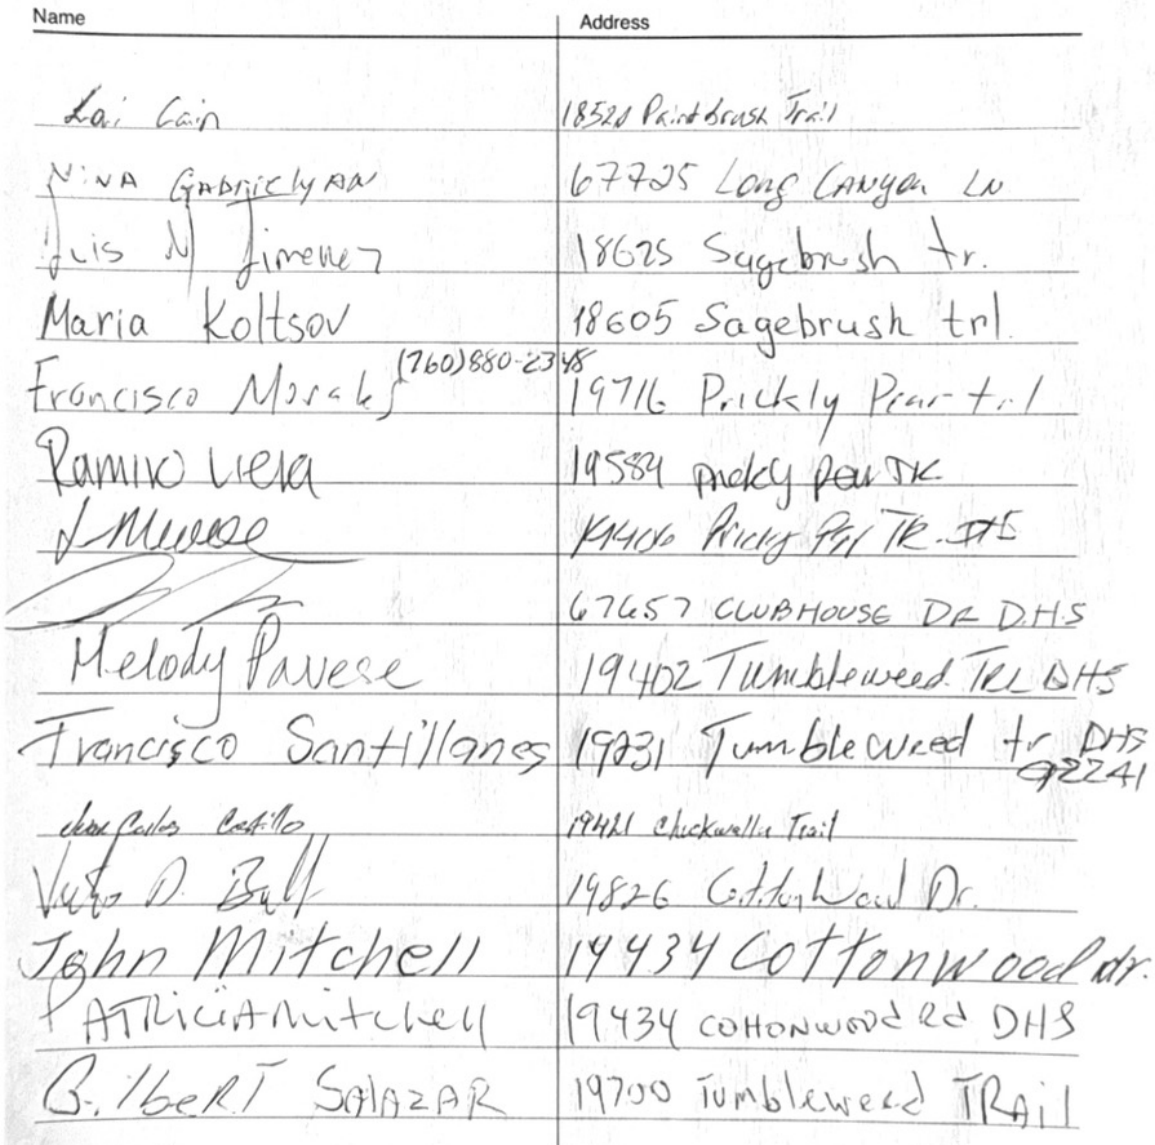 Name Address
Lori Cain 18520 Paintbrush Trail
NiNA GABRIelyAN 67725 Long CANyon LN
Luis M Jimenez 18625 Sagebrush tr.
Maria Koltsov 18605 Sagebrush trl.
(760)880-2348
Francisco Morales 19716 Prickly Pear trl
Ramiro Viera 19584 pricky pear TR
TR. DHS
67657 CLUBHOUSE DR D.H.S
Melody Pavese 19402 Tumbleweed TRL DHS
Francisco Santillanes 19231 Tumbleweed tr DHS
92241
Juan Carlos Castillo 19421 Chuckwalla Trail
D. 19826 Cottonwood Dr.
John Mitchell 19434 Cottonwood dr.
PATRiciA Mitchell 19434 cottonwood Rd DHS
GilbeRT SAlAZAR 19700 Tumbleweed TRAil